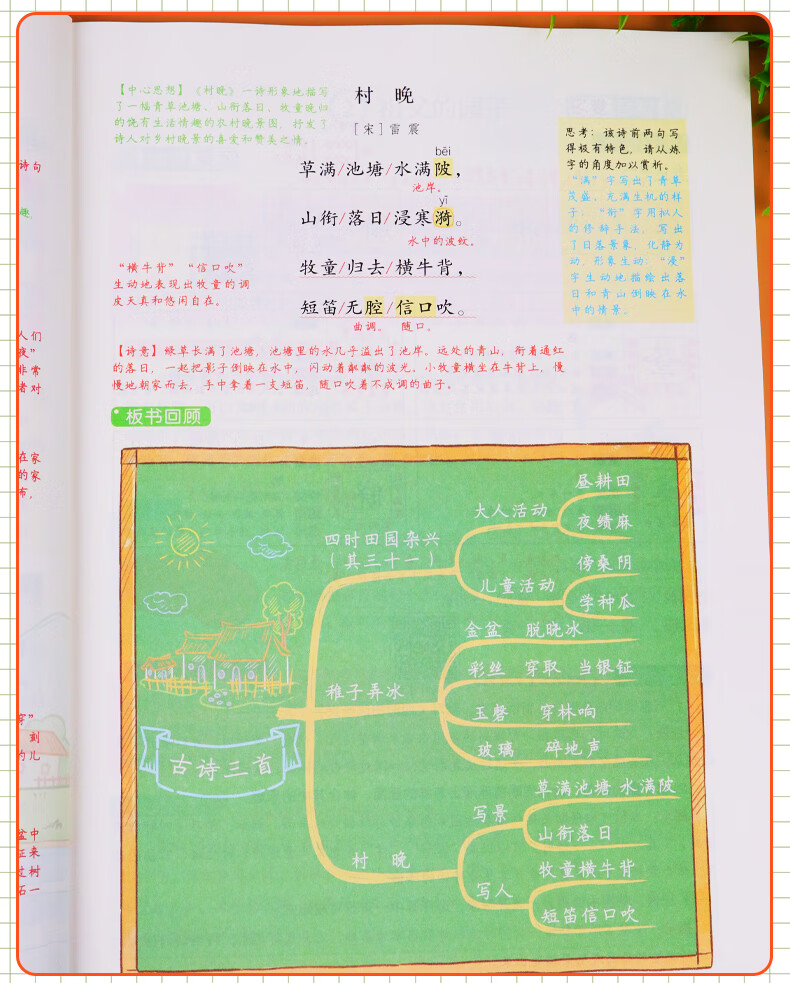 诗句
趣.
人们
夜”
非常
者对
在家
的家
布,
穿”
刻
的儿
盆中
征来
过树
石一
【中心思想】《村晚》一诗形象地描写
了一幅青草池塘、山衔落日、牧童晚归
的饶有生活情趣的农村晚景图, 抒发了
诗人对乡村晚景的喜爱和赞美之情。
村 晚
[宋] 雷 震
bēi
草满/池塘/水满陂,
池岸。
yī
山衔/落日/浸寒漪。
水中的波纹。
牧童/归去/横牛背,
短笛/无腔/信口吹。
曲调。 随口。
“横牛背” “信口吹”
生动地表现出牧童的调
皮天真和悠闲自在。
思考: 该诗前两句写
得极有特色, 请从炼
字的角度加以赏析。
“满” 字写出了青草
茂盛、充满生机的样
子; “衔” 字用拟人
的修辞手法, 写出
了日落景象, 化静为
动, 形象生动; “浸”
字生动地描绘出落
日和青山倒映在水
中的情景。
【诗意】绿草长满了池塘, 池塘里的水几乎溢出了池岸。远处的青山, 衔着通红
的落日, 一起把影子倒映在水中, 闪动着粼粼的波光。小牧童横坐在牛背上, 慢
慢地朝家而去, 手中拿着一支短笛, 随口吹着不成调的曲子。
板书回顾
古诗三首
四时田园杂兴
(其三十一)
大人活动
昼耕田
夜绩麻
儿童活动
傍桑阴
学种瓜
稚子弄冰
金盆 脱晓冰
彩丝 穿取 当银钲
玉磬 穿林响
玻璃 碎地声
村 晚
写景
草满池塘 水满陂
山衔落日
写人
牧童横牛背
短笛信口吹